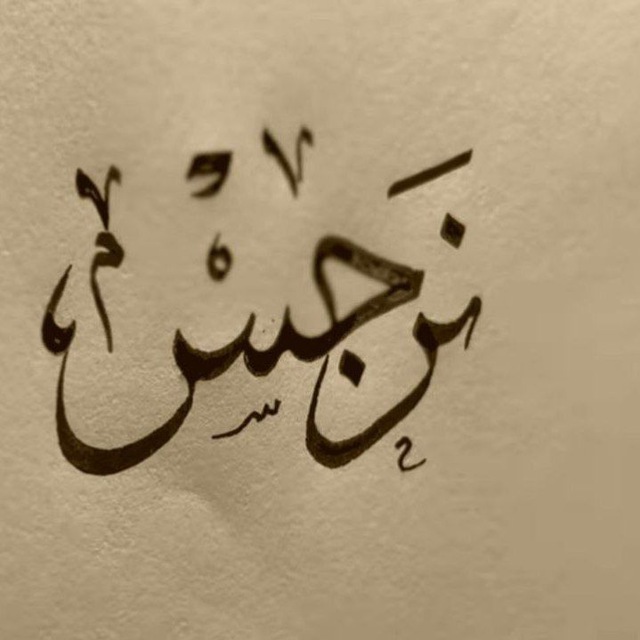 نرجس